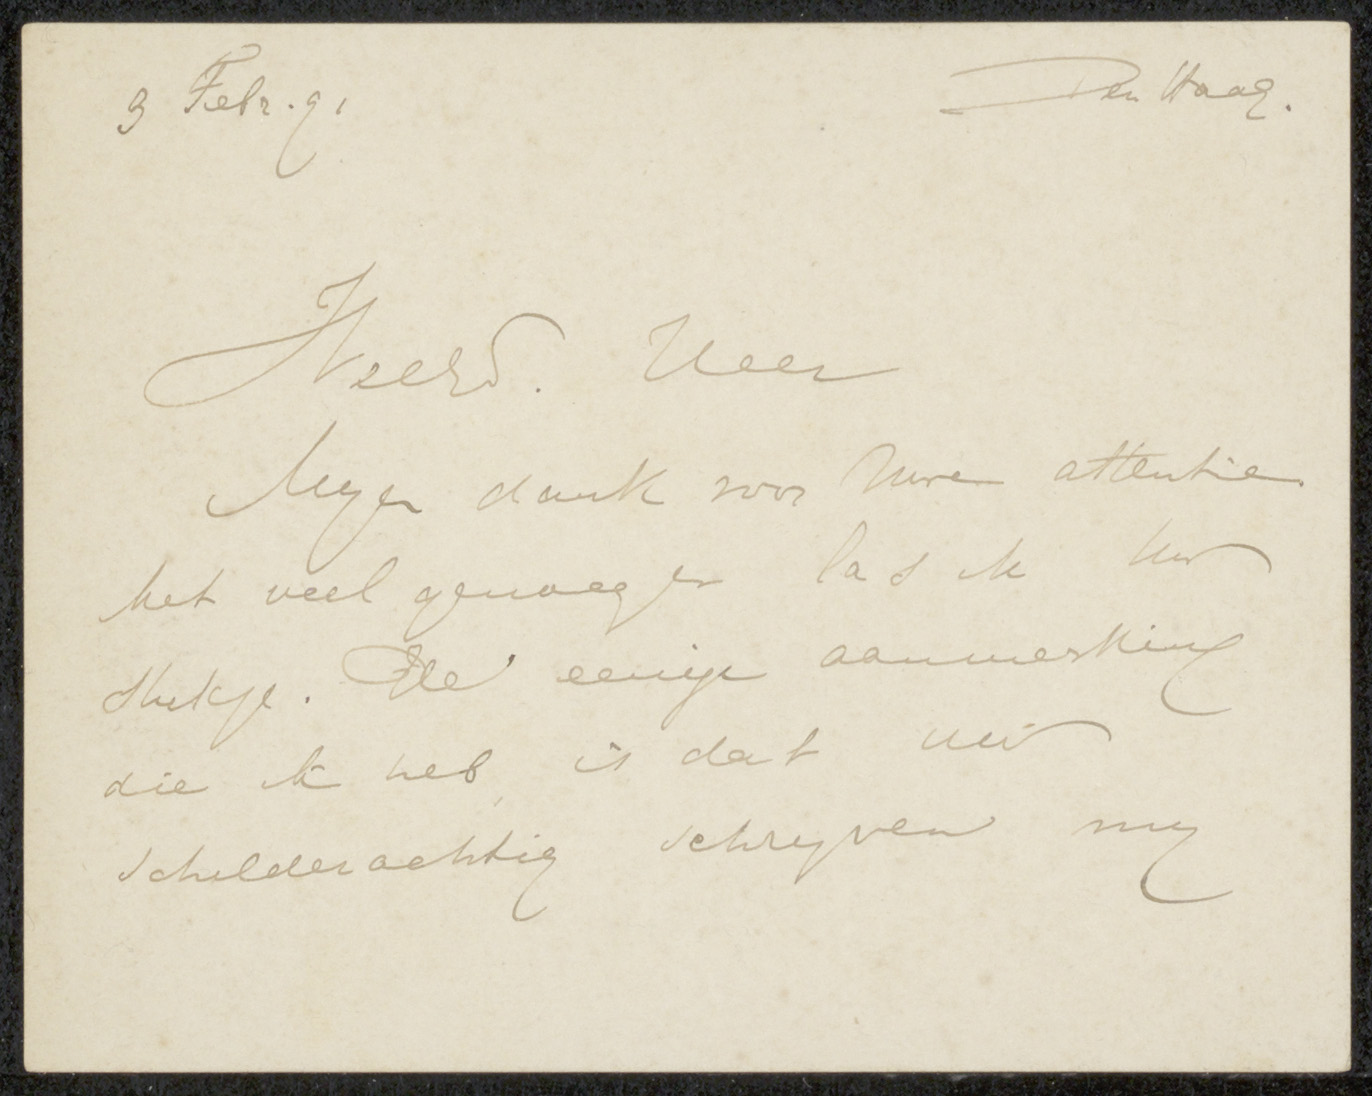 3 Febr. 91
Den Haag.
WeEd. Heer
Mijn dank voor Uwe attentie.
Met veel genoegen las ik Uw
stukje. De eenige aanmerking
die ik heb, is dat uw
schilderachtig schrijven mij